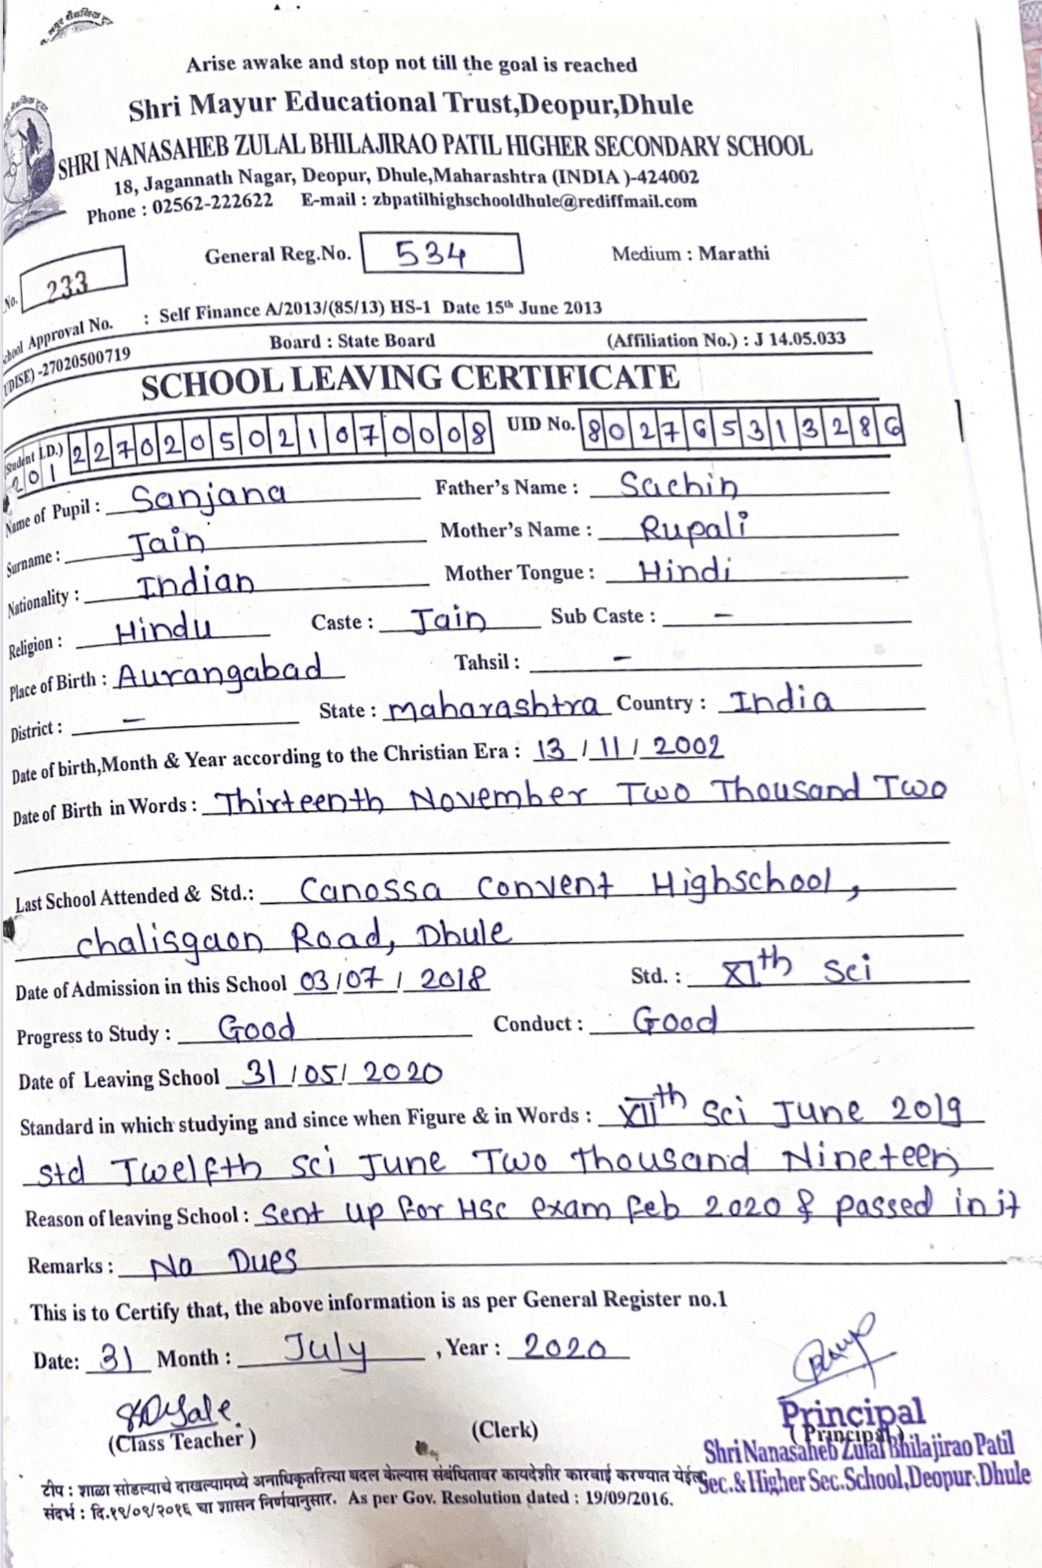 Arise awake and stop not till the goal is reached
Shri Mayur Educational Trust,Deopur,Dhule
SHRI NANASAHEB ZULAL BHILAJIRAO PATIL HIGHER SECONDARY SCHOOL
18, Jagannath Nagar, Deopur, Dhule,Maharashtra (INDIA )-424002
Phone : 02562-222622 E-mail : zbpatilhighschooldhule@rediffmail.com
No. 233 General Reg.No. 534 Medium : Marathi
Approval No. : Self Finance A/2013/(85/13) HS-1 Date 15th June 2013
-27020500719 Board : State Board (Affiliation No.) : J 14.05.033
SCHOOL LEAVING CERTIFICATE
Student I.D.) 201 2270205021070008 UID No. 802765313286
Name of Pupil : Sanjana Father's Name : Sachin
Surname : Jain Mother's Name : Rupali
Nationality : Indian Mother Tongue : Hindi
Religion : Hindu Caste : Jain Sub Caste : -
Place of Birth : Aurangabad Tahsil : -
District : - State : maharashtra Country : India
Date of birth,Month & Year according to the Christian Era : 13 / 11 / 2002
Date of Birth in Words : Thirteenth November Two Thousand Two
Last School Attended & Std.: Canossa Convent Highschool,
chalisgaon Road, Dhule
Date of Admission in this School 03/07/2018 Std. : XIth Sci
Progress to Study : Good Conduct : Good
Date of Leaving School 31/05/2020
Standard in which studying and since when Figure & in Words : XIIth Sci June 2019
std Twelfth sci June Two thousand Nineteen
Reason of leaving School : Sent up for HSC exam feb 2020 & passed in it
Remarks : No Dues
This is to Certify that, the above information is as per General Register no.1
Date: 31 Month : July , Year : 2020
(Class Teacher ) (Clerk) Principal
( Principal )
Shri Nanasaheb Zulal Bhilajirao Patil
Sec.& Higher Sec.School,Deopur.Dhule
टीप : शाळा सोडल्याचे दाखल्यामध्ये अनाधिकृतरित्या बदल केल्यास संबंधितावर कायदेशीर कारवाई करण्यात येईल.
संदर्भ : दि.१९/०९/२०१६ चा शासन निर्णयानुसार. As per Gov. Resolution dated : 19/09/2016.